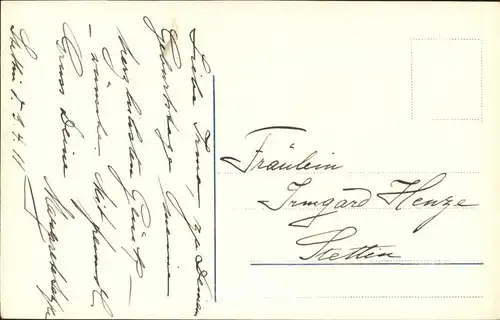 Liebe Irma, zu Deinem
Geburtstage meine
herzlichsten Glück-
wünsche. Mit freundl.
Gruss Deine
Stettin d. 9. 4. 11
Fräulein
Irmgard Henze
Stettin